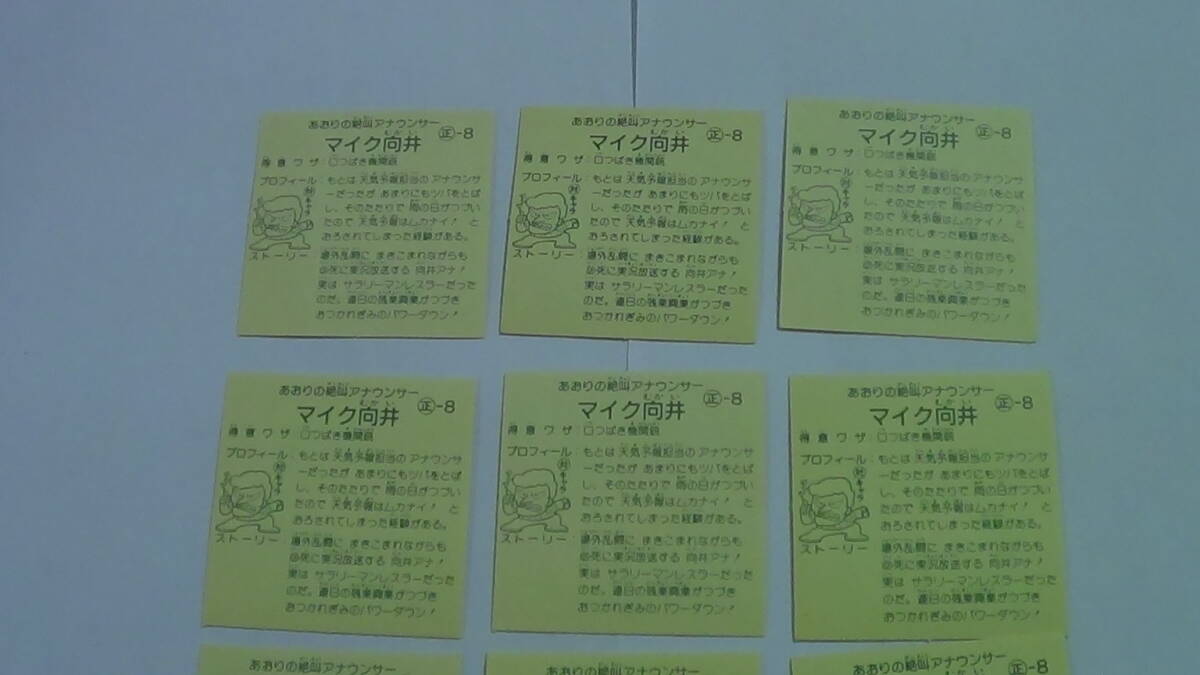 あおりの絶叫アナウンサー
マイク向井 正-8
得意ワザ:口つばき機関銃
プロフィール:もとは天気予報担当のアナウンサ
ーだったが あまりにもツバをとば
し、そのたたりで 雨の日がつづい
たので 天気予報はムカナイ! と
おろされてしまった経験がある。
対キャラ
ストーリー:場外乱闘に まきこまれながらも
必死に実況放送する 向井アナ!
実は サラリーマンレスラーだった
のだ。連日の残業興業がつづき
おつかれぎみのパワーダウン!
あおりの絶叫アナウンサー
マイク向井 正-8
得意ワザ:口つばき機関銃
プロフィール:もとは天気予報担当のアナウンサ
ーだったが あまりにもツバをとば
し、そのたたりで 雨の日がつづい
たので 天気予報はムカナイ! と
おろされてしまった経験がある。
対キャラ
ストーリー:場外乱闘に まきこまれながらも
必死に実況放送する 向井アナ!
実は サラリーマンレスラーだった
のだ。連日の残業興業がつづき
おつかれぎみのパワーダウン!
あおりの絶叫アナウンサー
マイク向井 正-8
得意ワザ:口つばき機関銃
プロフィール:もとは天気予報担当のアナウンサ
ーだったが あまりにもツバをとば
し、そのたたりで 雨の日がつづい
たので 天気予報はムカナイ! と
おろされてしまった経験がある。
対キャラ
ストーリー:場外乱闘に まきこまれながらも
必死に実況放送する 向井アナ!
実は サラリーマンレスラーだった
のだ。連日の残業興業がつづき
おつかれぎみのパワーダウン!
あおりの絶叫アナウンサー
マイク向井 正-8
得意ワザ:口つばき機関銃
プロフィール:もとは天気予報担当のアナウンサ
ーだったが あまりにもツバをとば
し、そのたたりで 雨の日がつづい
たので 天気予報はムカナイ! と
おろされてしまった経験がある。
対キャラ
ストーリー:場外乱闘に まきこまれながらも
必死に実況放送する 向井アナ!
実は サラリーマンレスラーだった
のだ。連日の残業興業がつづき
おつかれぎみのパワーダウン!
あおりの絶叫アナウンサー
マイク向井 正-8
得意ワザ:口つばき機関銃
プロフィール:もとは天気予報担当のアナウンサ
ーだったが あまりにもツバをとば
し、そのたたりで 雨の日がつづい
たので 天気予報はムカナイ! と
おろされてしまった経験がある。
対キャラ
ストーリー:場外乱闘に まきこまれながらも
必死に実況放送する 向井アナ!
実は サラリーマンレスラーだった
のだ。連日の残業興業がつづき
おつかれぎみのパワーダウン!
あおりの絶叫アナウンサー
マイク向井 正-8
得意ワザ:口つばき機関銃
プロフィール:もとは天気予報担当のアナウンサ
ーだったが あまりにもツバをとば
し、そのたたりで 雨の日がつづい
たので 天気予報はムカナイ! と
おろされてしまった経験がある。
対キャラ
ストーリー:場外乱闘に まきこまれながらも
必死に実況放送する 向井アナ!
実は サラリーマンレスラーだった
のだ。連日の残業興業がつづき
おつかれぎみのパワーダウン!
あおりの絶叫アナウンサー
あおりの絶叫アナウンサー
あおりの絶叫アナウンサー 正-8